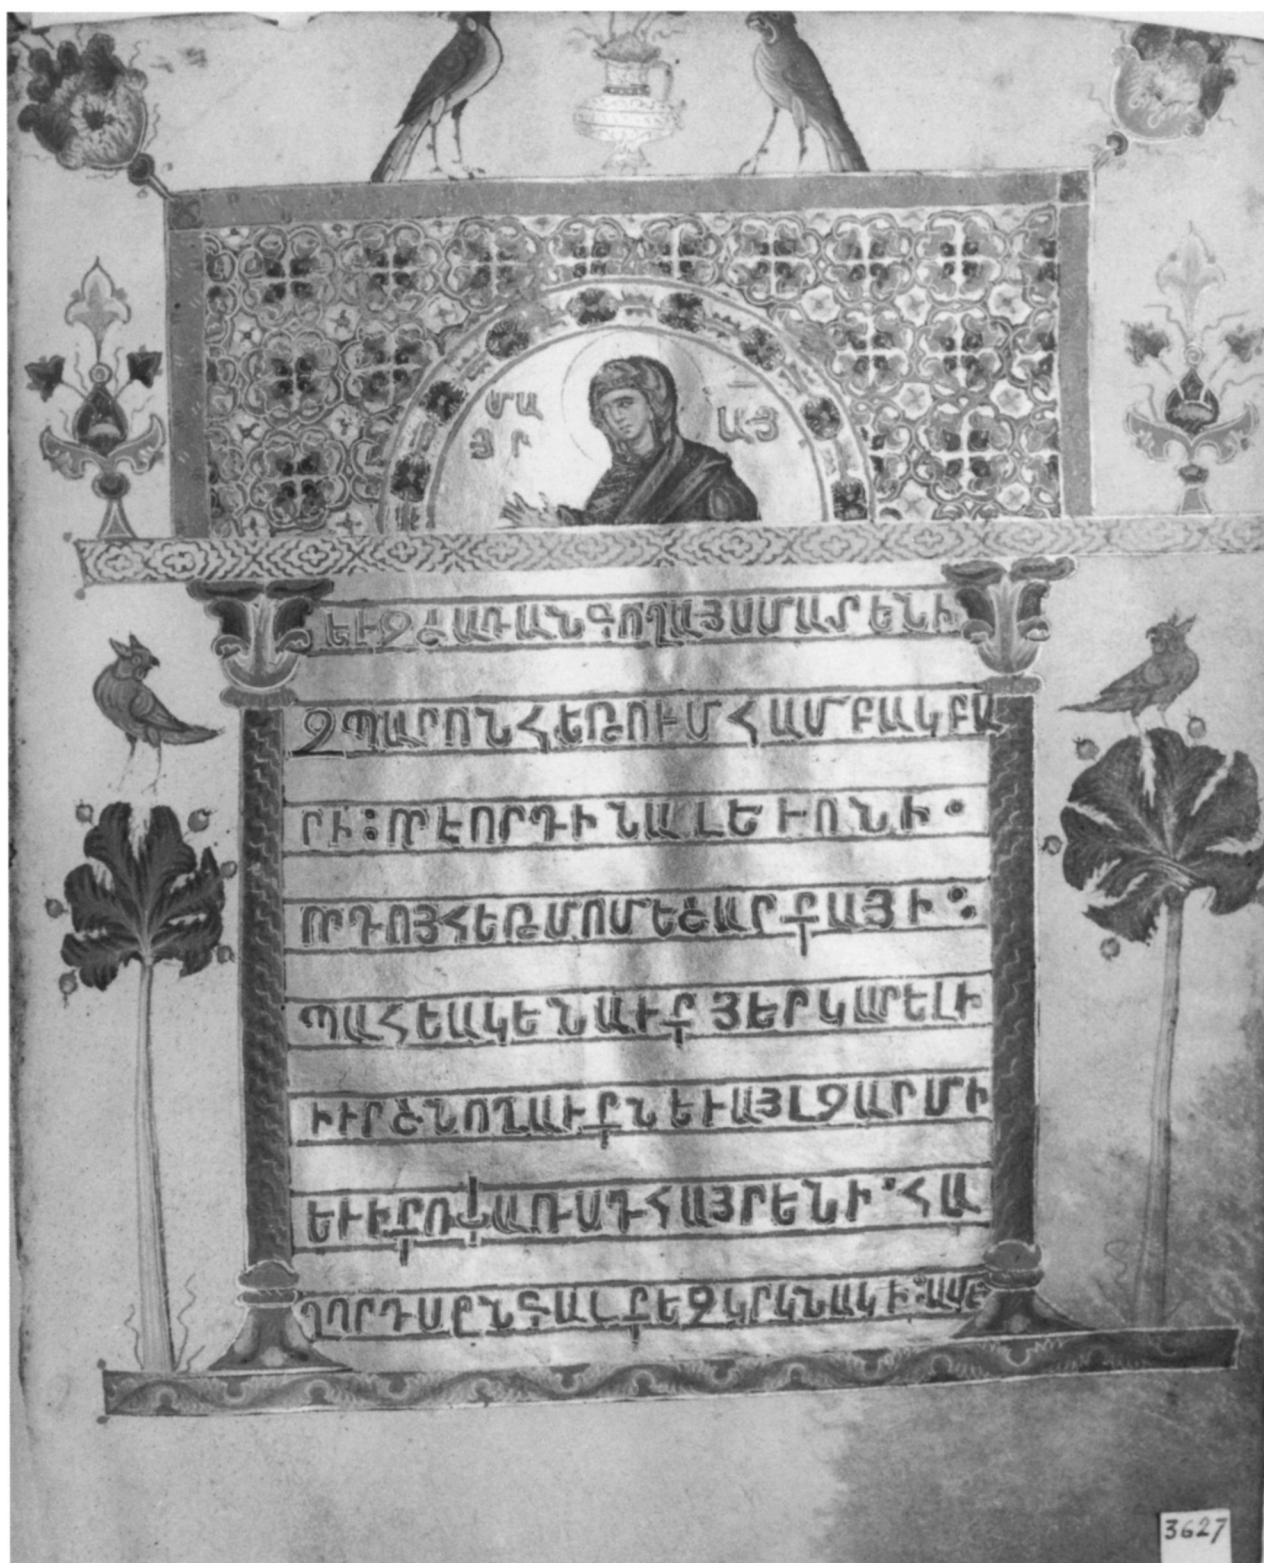 ՄԱ
ՅՐ
ԱՅ
ԵՒԶՁԱՌԱՆԳՈՂԱՅՍՄԱՐԵՆԻ
ԶՊԱՐՈՆՀԵԹՈՒՄՀԱՄԲԱԿԲԱ
ՐԻ։ՈՐԷՈՐԴԻՆԱԼԵՒՈՆԻ․
ՈՐԴՈՅՀԵԹՄՈՄԵԾԱՐՔԱՅԻ։
ՊԱՀԵԱԿԵՆԱՒՔՅԵՐԿԱՐԵԼԻ
ԻՒՐԾՆՈՂԱՒՔՆԵՒԱՅԼԶԱՐՄԻ
ԵՒԷՔՌՓԱՌԱԴՀԱՅՐԵՆԻ․ՀԱ
ՂՈՐԴՍԸՆԳԱԼՔԵԶԿՐԿՆԱԿԻ։ԱՄԷ
3627